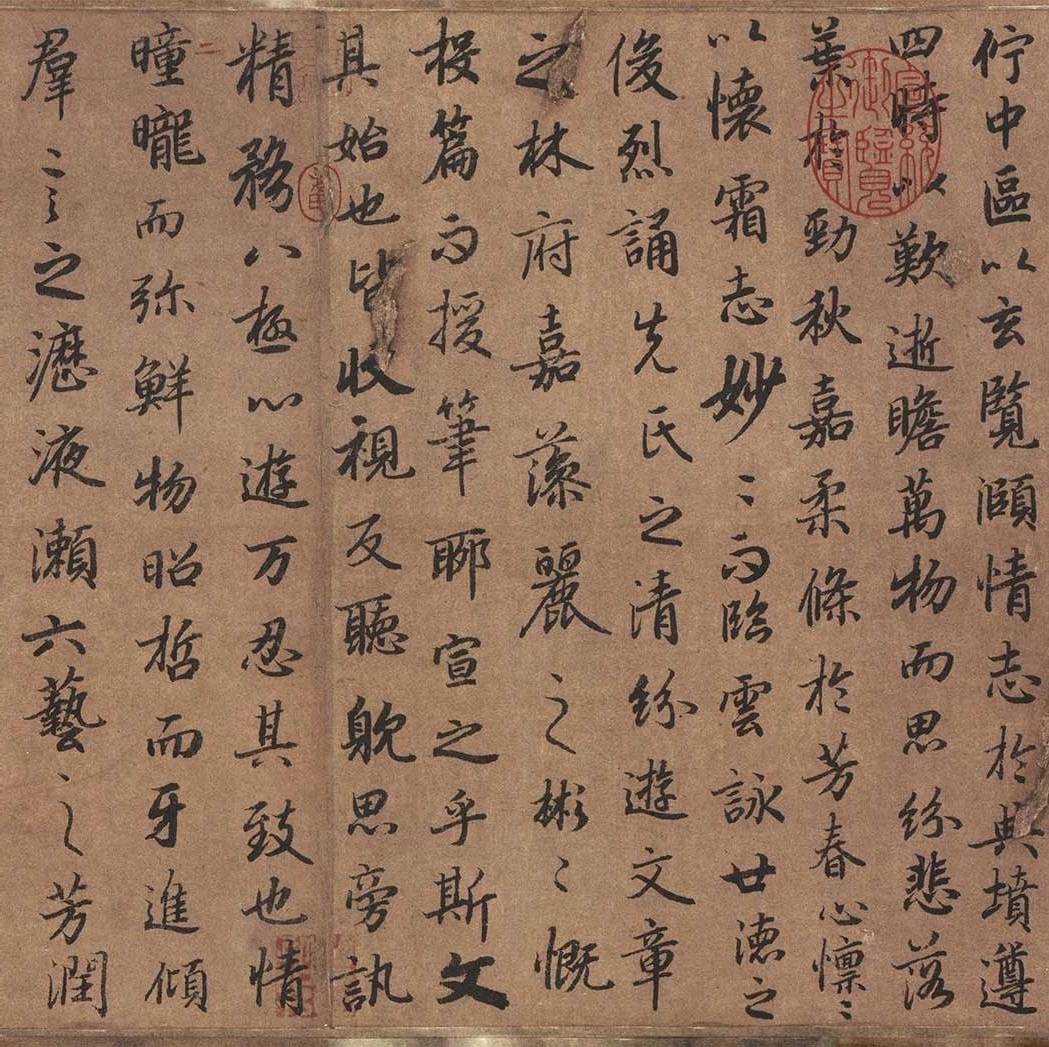 佇中區以玄覽頤情志於典墳遵
四時以歎逝瞻萬物而思紛悲落
葉於勁秋嘉柔條於芳春心懍〻
以懷霜志妙〻而臨雲詠世德之
俊烈誦先氏之清紛遊文章
之林府嘉藻麗之彬〻慨
投篇而援筆聊宣之乎斯文
其始也皆收視反聽躭思旁訊
精務八極心遊万忍其致也情
曈曨而弥鮮物昭晢而牙進傾
羣言之瀝液瀬六藝之芳潤
宣統御覽之寶